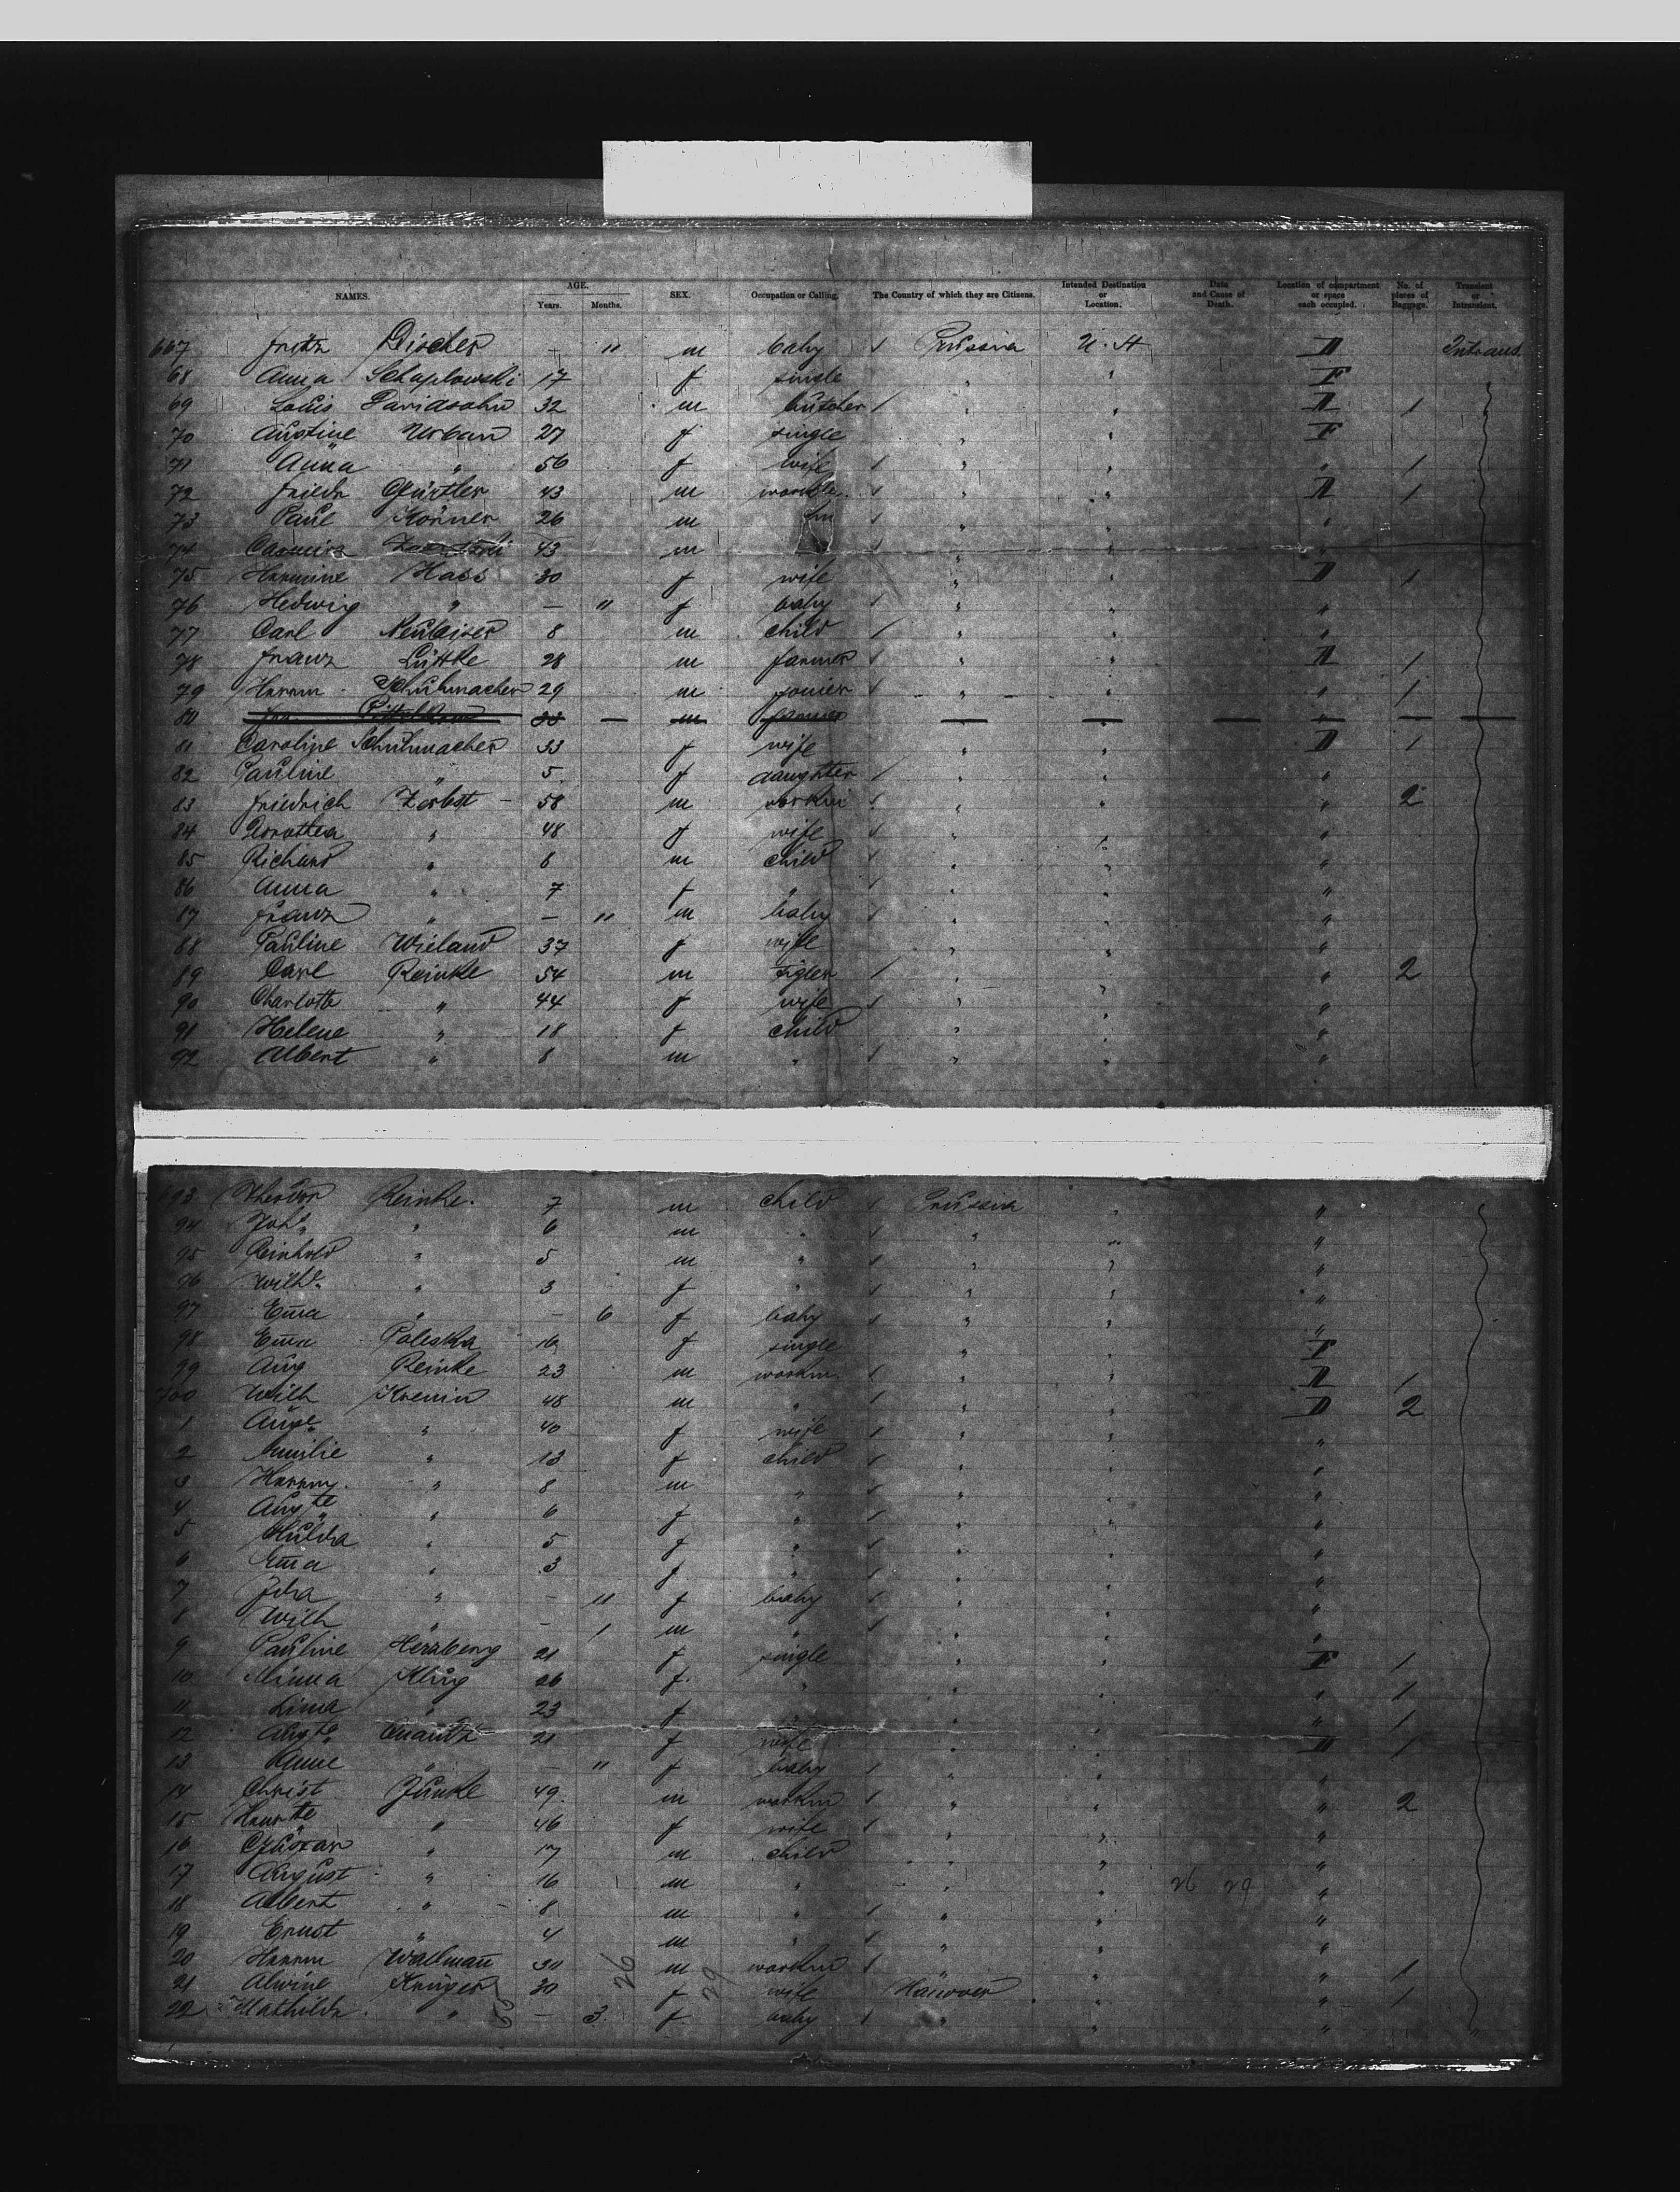 NAMES. AGE. Years. Months. SEX. Occupation or Calling. The Country of which they are Citizens. Intended Destination or Location. Date and Cause of Death. Location of compartment or space each occupied. No. of pieces of Baggage. Transient or Intransient.
667 Fritz Discher — " m baby / Prussia U.St D Intrans
68 Anna Schaplowski 17 f single " " F
69 Louis Davidsohn 32 m butcher / " " A 1
70 Augtine Urban 27 f single " " F
71 Anna " 56 f wife / " " " 1
72 Friedr Gürtler 43 m workm. / " " A 1
73 Paul Körner 26 m / " " "
74 Casimir 43 m / " " "
75 Hermine Hass 30 f wife " " D 1
76 Hedwig " — " f baby / " " "
77 Carl 8 m child / " " "
78 Franz Lüttke 28 m farmer / " " A 1
79 Herrm Schuhmacher 29 m joiner / " " " 1
80 m farmer — — — " — —
81 Caroline Schuhmacher 33 f wife " " D 1
82 Pauline " 5 f daughter / " " "
83 Friedrich Zerbst 58 m workm / " " " 2
84 Dorothea " 48 f wife / " " "
85 Richard " 8 m child / " " "
86 Anna " 7 f " / " " "
87 Franz " — " m baby / " " "
88 Pauline Wieland 37 f wife " " "
89 Carl Reinke 54 m / " " " 2
90 Charlotte " 44 f wife / " " "
91 Helene " 18 f child " " "
92 Albert " 8 m " / " " "
93 Theodor Reinke. 7 m child / Prussia " "
94 Joh.e " 6 m " / " " "
95 Reinhold " 5 m " / " " "
96 Wilh.e " 3 f " / " " "
97 Em̄a " — 6 f baby / " " "
98 Em̄a Paleska 16 f single " " F
99 Aug Reinke 23 m workm. / " " A 1
700 Wilh Krenin 48 m " / " " D 2
1 Aug.e " 40 f wife / " " "
2 Emilie " 13 f child / " " "
3 Herrm. " 8 m " / " " "
4 Aug.te " 6 f " / " " "
5 Hulda " 5 f " / " " "
6 Em̄a " 3 f " / " " "
7 Ida " — " f baby / " " "
8 Wilh " — 1 m " / " " "
9 Pauline Herzberg 21 f single " " F 1
10 Minna Klug 26 f. " " " " 1
11 Lina " 23 f " " " " 1
12 Aug.te Quandt 21 f wife " " D 1
13 Anne " — " f baby / " " "
14 Christ Junke 49. m workm / " " " 2
15 Henr.tte " 46 f wife / " " "
16 Gustav " 17 m child " " "
17 August " 16 m " " " 26 29 "
18 Albert " 8 m " / " " "
19 Ernst " 4 m " / " " "
20 Herrm Wallman̄ 30 m workm / " " " 1
21 Alwine Krüger 30 f wife Hanover " " 1
22 Mathilde " — 3. f baby / " " "
26 29